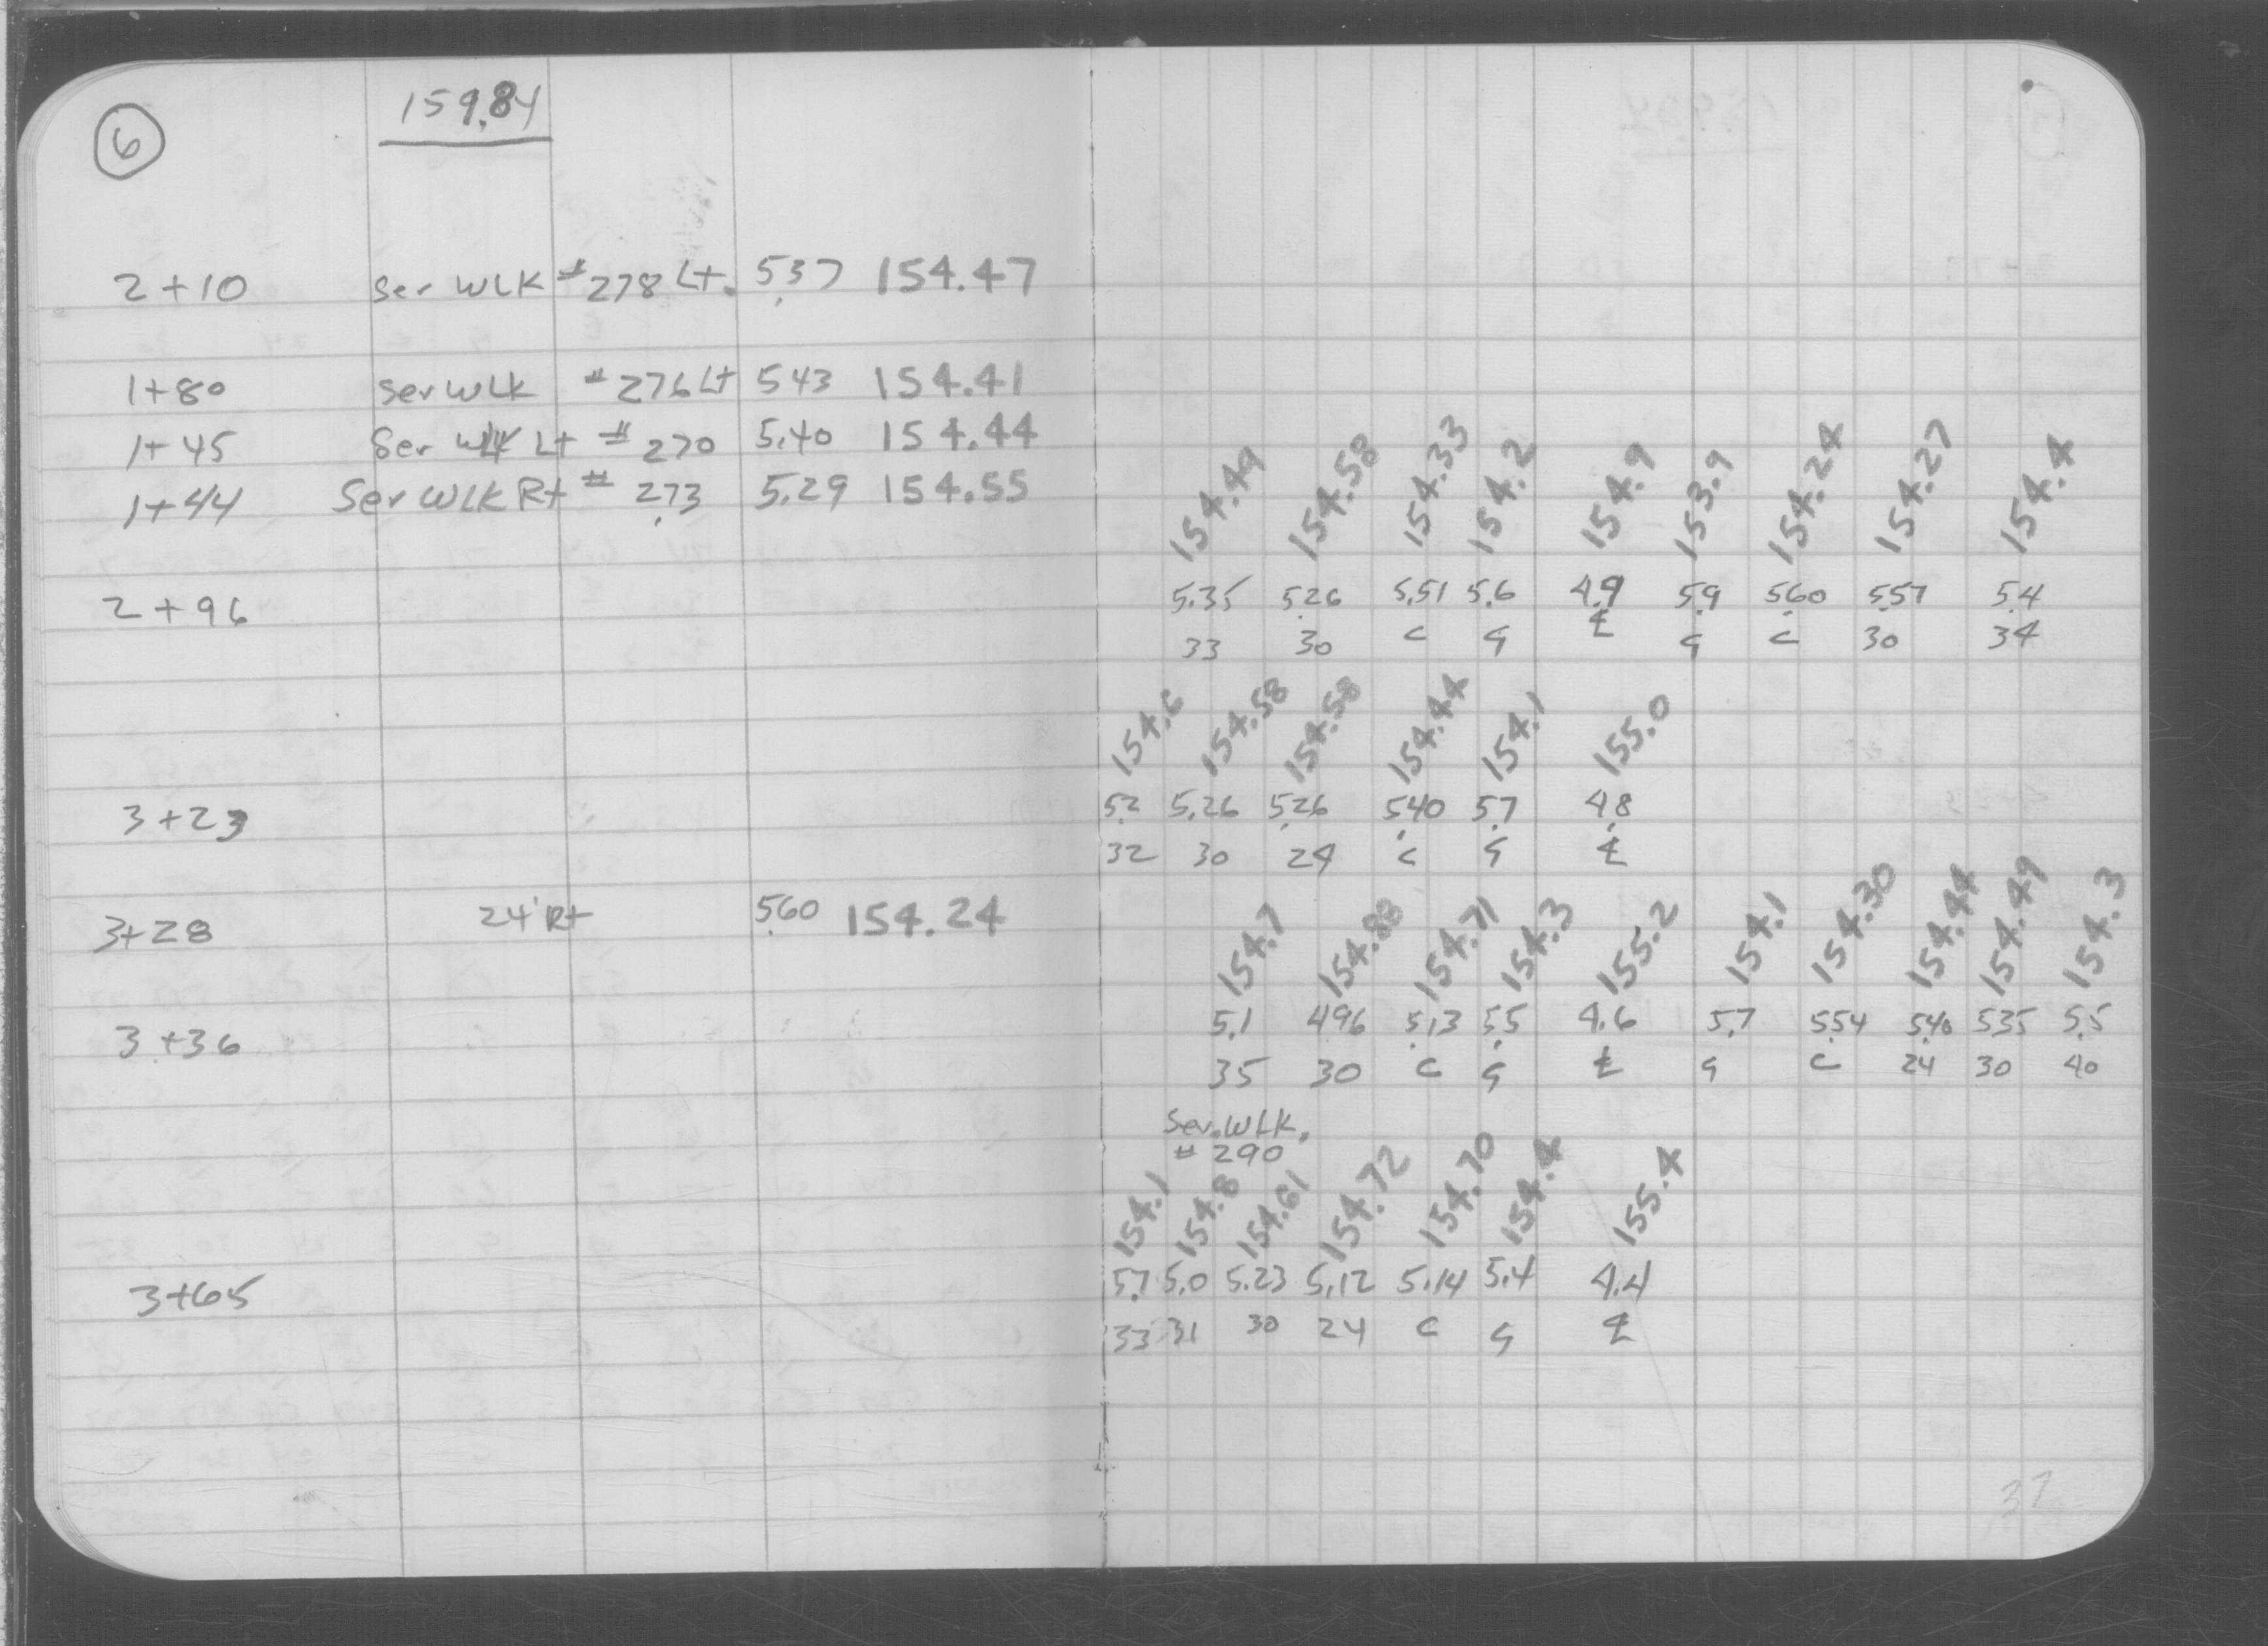 6
159.84
2+10 Ser WLK #278 Lt. 5.37 154.47
1+80 Ser WLK #276 Lt 543 154.41
1+45 Ser WLK Lt # 270 5.40 154.44
1+44 Ser WLK Rt # 273 5.29 154.55
154.49 154.58 154.33 154.2 154.9 153.9 154.24 154.27 154.4
2+96 5.35 5.26 5.51 5.6 4.9 5.9 5.60 5.57 5.4
33 30 C G ℄ G C 30 34
154.6 154.58 154.58 154.44 154.1 155.0
3+23 5.2 5.26 5.26 5.40 5.7 4.8
32 30 24 C G ℄
3+28 24' Rt 5.60 154.24
154.7 154.88 154.71 154.3 155.2 154.1 154.30 154.44 154.49 154.3
3+36 5.1 4.96 5.13 5.5 4.6 5.7 5.54 5.40 5.35 5.5
35 30 C G ℄ G C 24 30 40
Ser. WLK.
# 290
154.1 154.8 154.61 154.72 154.70 154.4 155.4
3+65 5.7 5.0 5.23 5.12 5.14 5.4 4.4
33 31 30 24 C G ℄
37